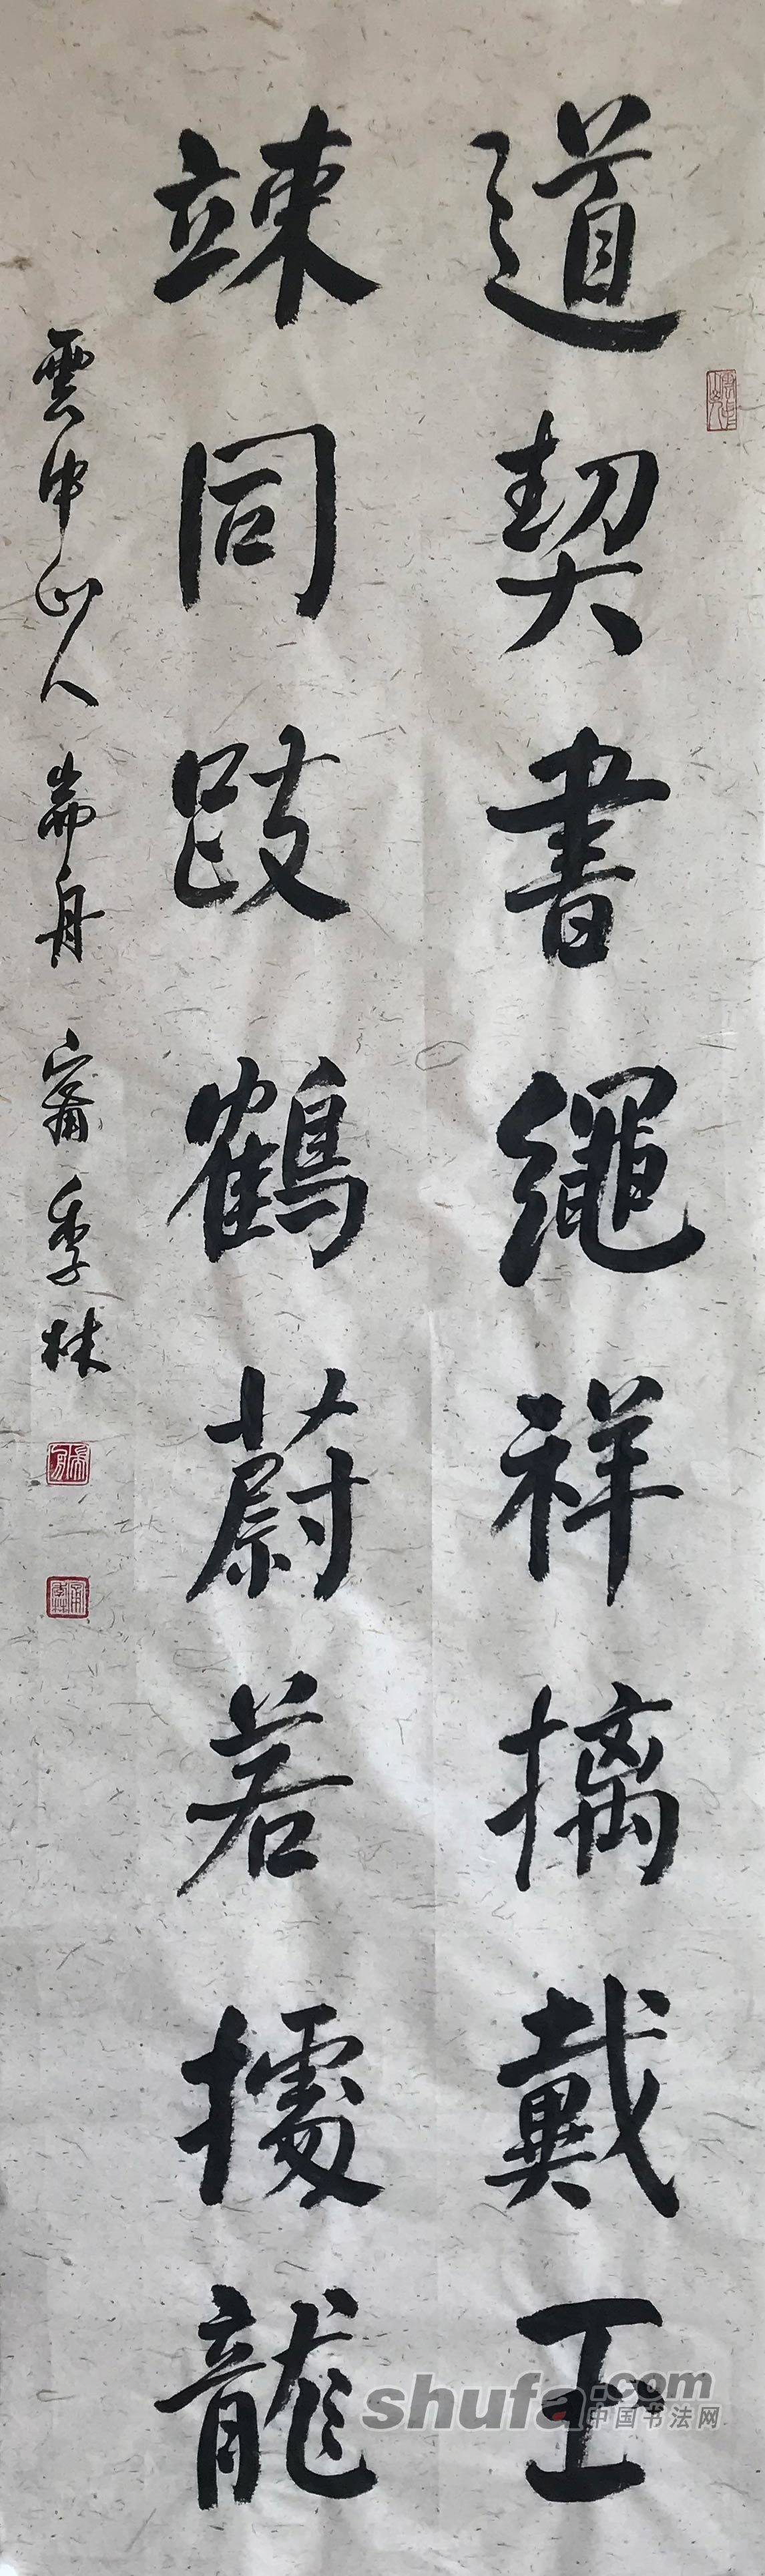 道契書繩祥摛戴玉
竦同跂鶴蔚若據龍
雲中山人 崙舟 甯季林
shufa.com
中国书法网